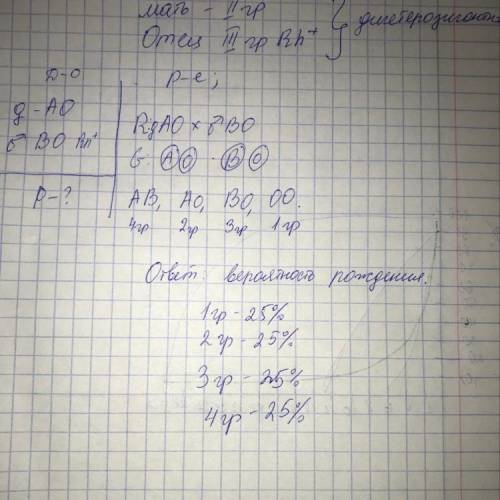 мать - II гр
Отец III гр Rh⁺ } дигетерозигот
Д-о
♀ - АО
♂ ВО Rh⁺
Р - ?
Р-е;
Р: ♀АО × ♂ВО
G: А О В О
АВ, АО, ВО, ОО.
4гр 2гр 3гр 1гр
Ответ: вероятность рождения.
1гр - 25%
2гр - 25%
3гр - 25%
4гр - 25%